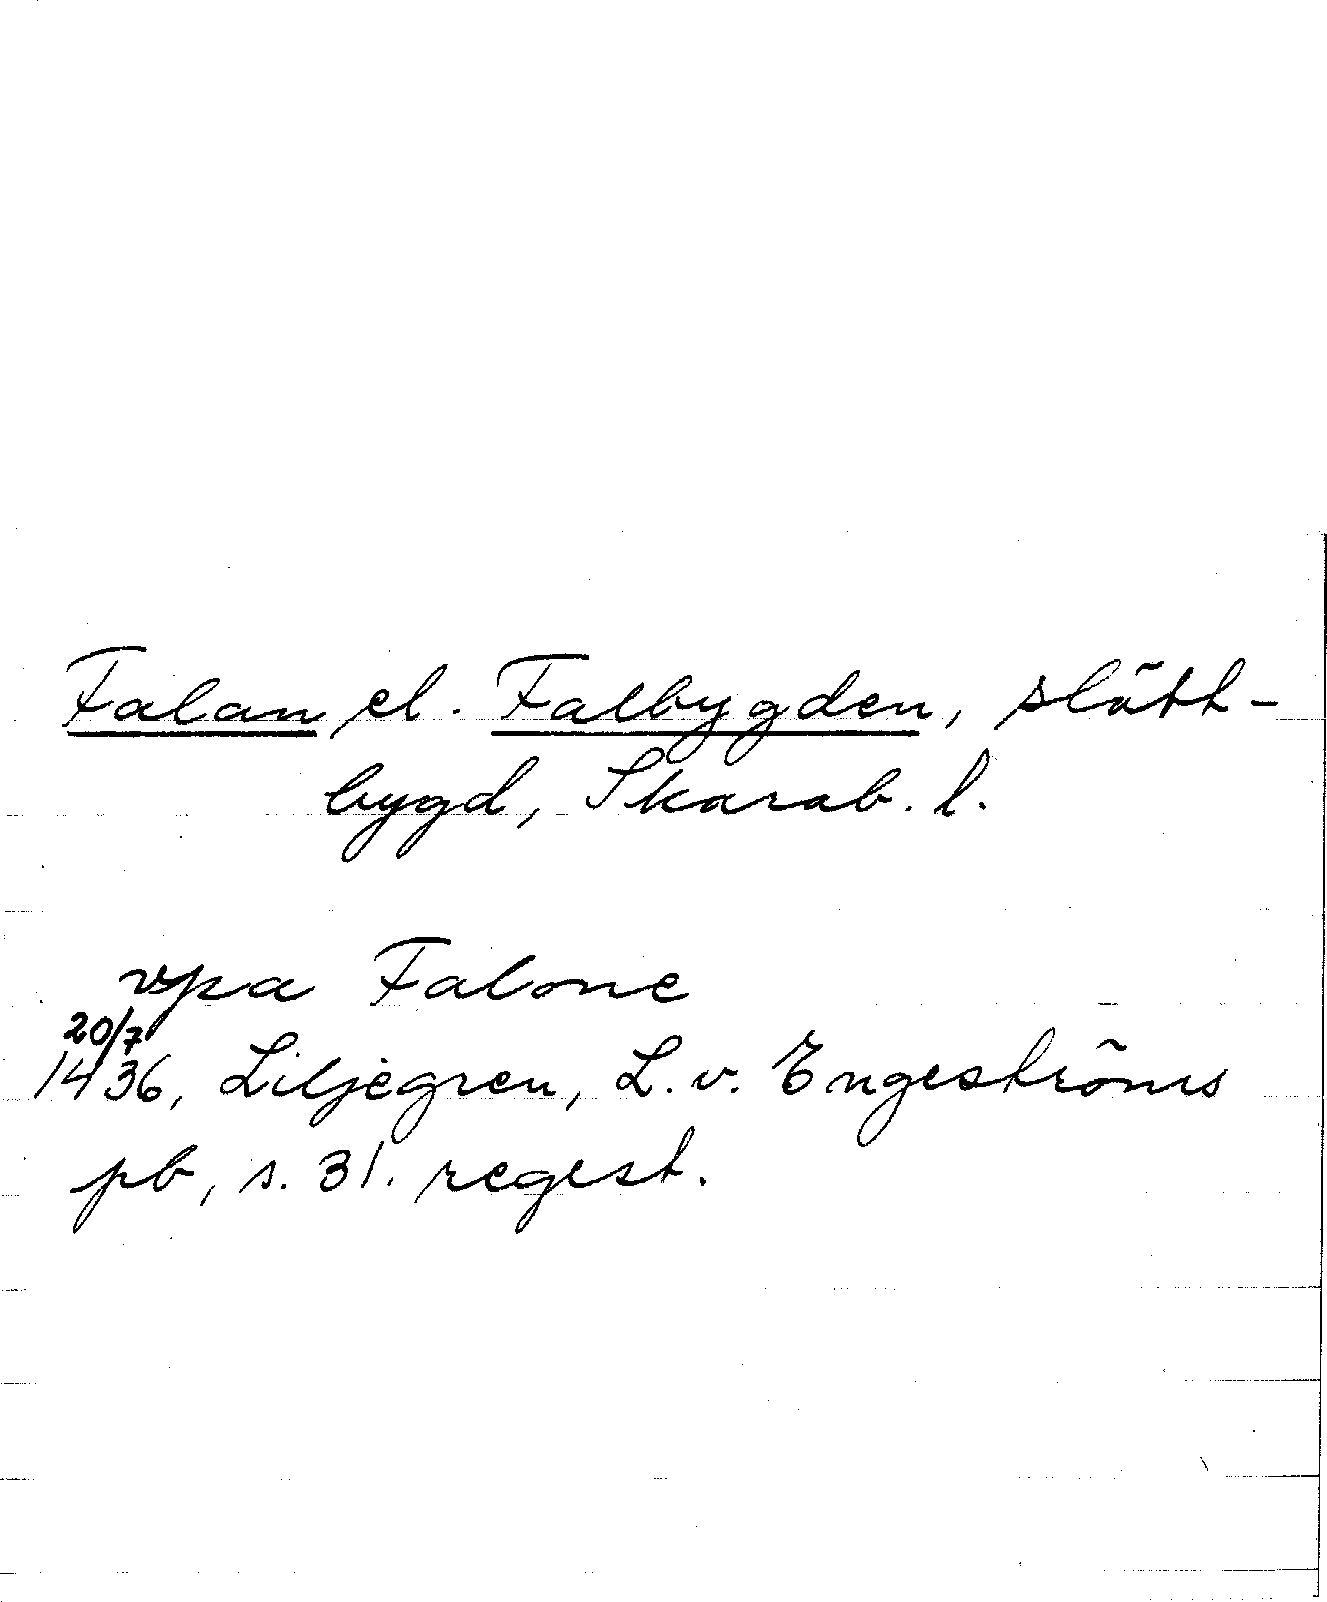 Falan el. Falbygden, slätt-
bygd, Skarab. l.
vpa Falone
20/7
1436, Liljegren, L. v. Engeströms
pb, s. 31. regest.